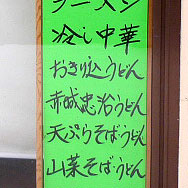 ラーメン
冷し中華
おきりこみうどん
赤城忠治うどん
天ぷらそばうどん
山菜そばうどん